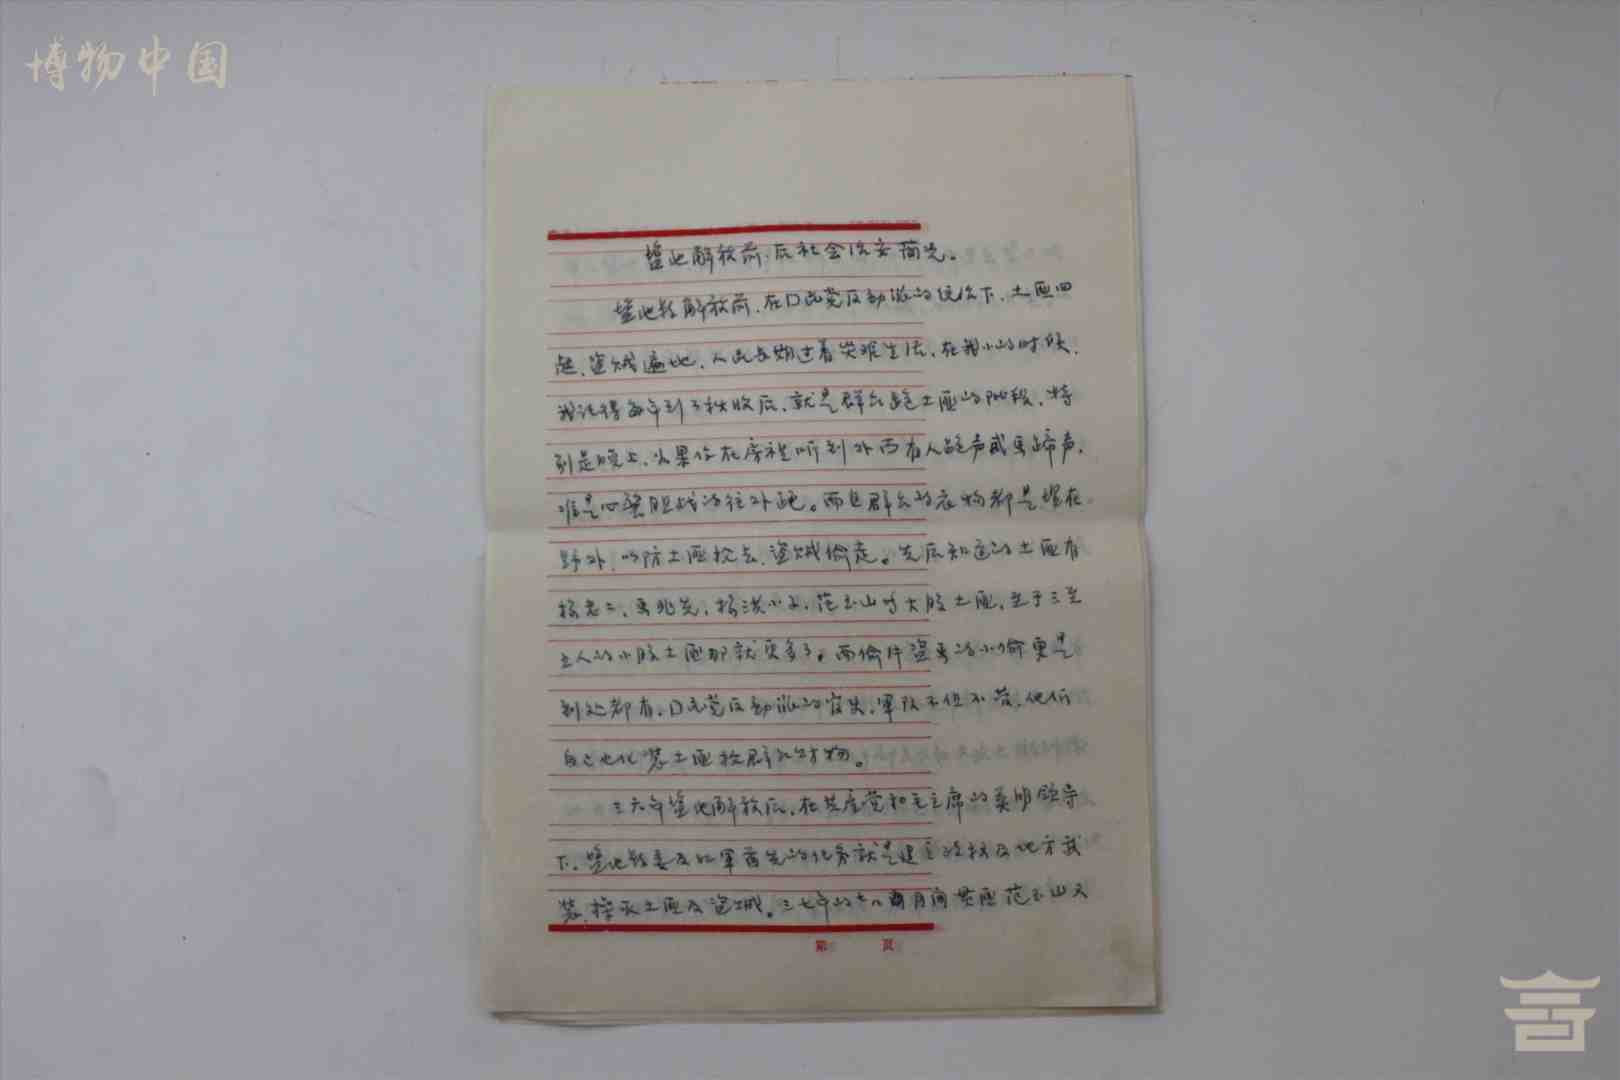 博物中国
盐池解放前、后社会治安简况。
盐池县解放前，在口民党反动派的统治下，土匪四
起，盗贼遍地，人民长期过着灾难生活，在我小的时候，
我记得每年到了秋收后，就是群众跑土匪的阶段，特
别是晚上，如果你在房里听到外面有人跑声或马蹄声，
准是心惊胆战的往外跑。而且群众的衣物都是埋在
野外，以防土匪抢去，盗贼偷走。先后知道的土匪有
杨老二，马兆先，杨洪小子，范玉山等大股土匪，至于三至
五人的小股土匪那就更多了。而偷牛盗马的小偷更是
到处都有，口民党反动派的官吏，军队不但不管，他们
自己也化装土匪抢群众财物。
三六年盐池解放后，在共产党和毛主席的英明领导
下，盐池县委及红军首先的任务就是建立政权及地方武
装，扑灭土匪及盗贼。三七年的七八两月间惯匪范玉山又
第 頁